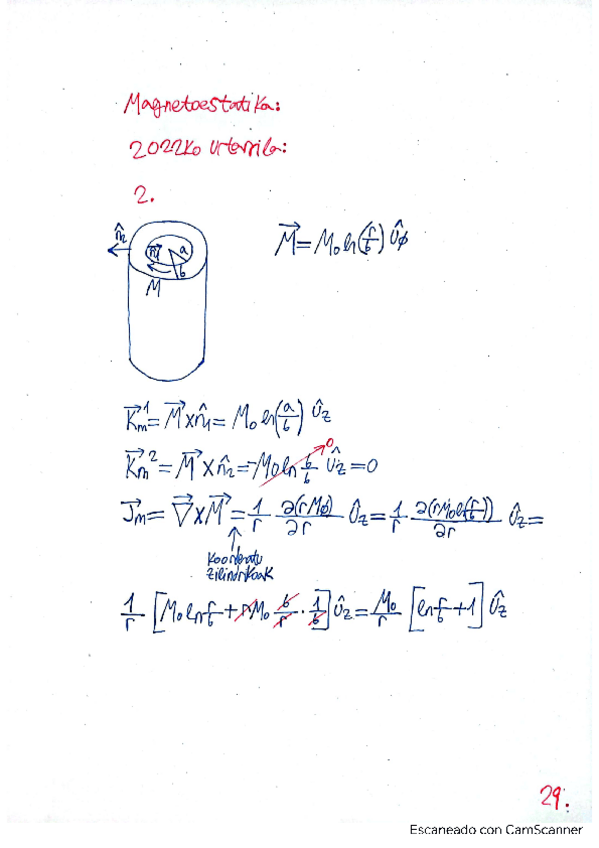 Magnetoestatika:
2022ko Urtarrila:
2.
n̂₂ n̂₁ a b M
M⃗ = M₀ ln(r/b) Û_ϕ
K⃗m¹ = M⃗ x n̂₁ = M₀ ln(a/b) Û_z
K⃗m² = M⃗ x n̂₂ = -M₀ ln b/b Û_z = 0
0
J⃗m = ∇⃗ x M⃗ = 1/r ∂(rMϕ)/∂r Û_z = 1/r ∂(rM₀ln(r/b))/∂r Û_z =
Koordenatu
zilindrikoak
1/r [M₀ ln r/b + rM₀ b/r · 1/b] Û_z = M₀/r [ln r/b + 1] Û_z
29.
Escaneado con CamScanner